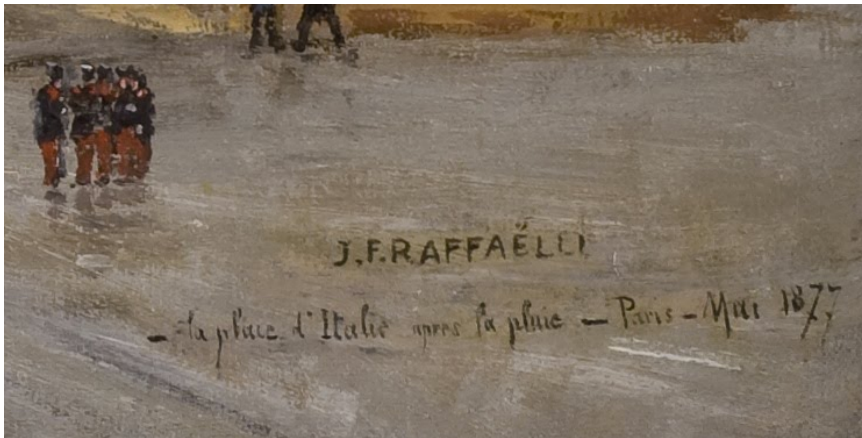 J.F.RAFFAËLLI
– la place d'Italie après la pluie – Paris – Mai 1877